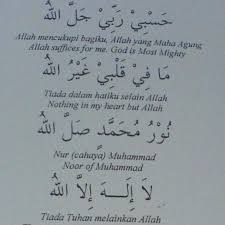 حَسْبِيْ رَبِّيْ جَلَّ اللهُ
Allah mencukupi bagiku, Allah yang Maha Agung
Allah suffices for me. God is Most Mighty
مَا فِيْ قَلْبِيْ غَيْرُ اللهُ
Tiada dalam hatiku selain Allah
Nothing in my heart but Allah
نُوْرُ مُحَمَّدٍ صَلَّ اللهُ
Nur (cahaya) Muhammad
Noor of Muhammad
لَا إِلَـهَ إِلَّا اللهُ
Tiada Tuhan melainkan Allah